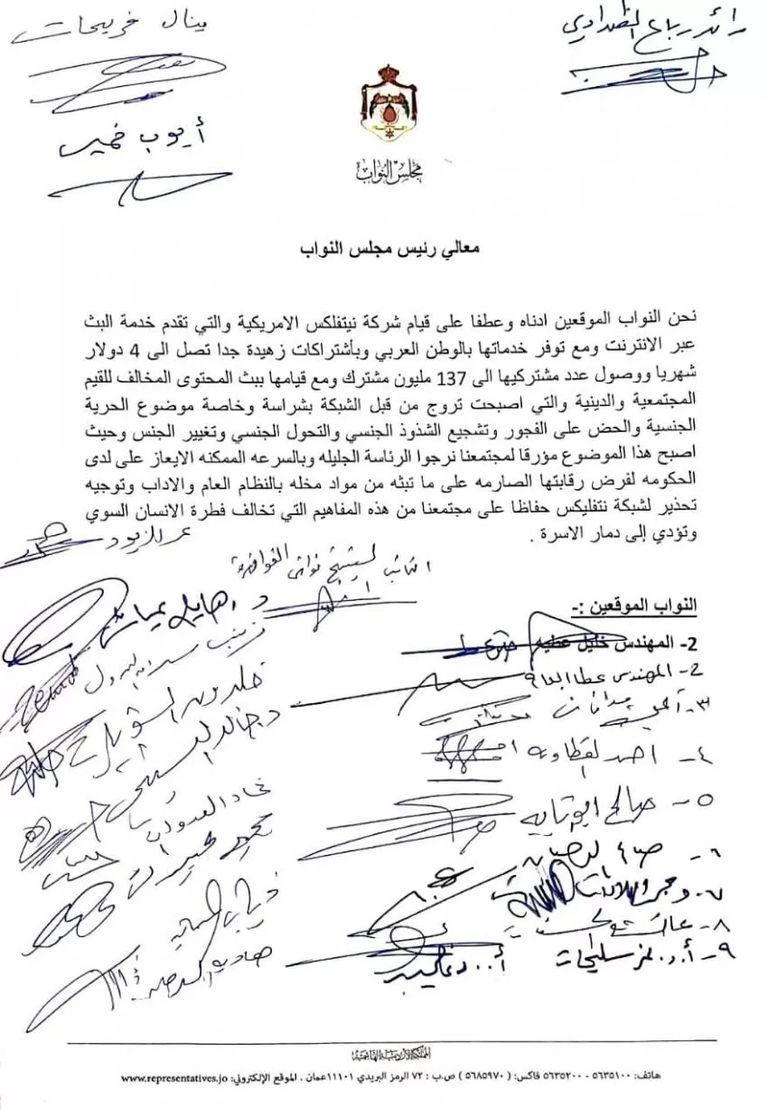 رائد رباع الظهراوي
ينال فريحات
أيوب خميس
مجلس النواب
معالي رئيس مجلس النواب
نحن النواب الموقعين ادناه وعطفا على قيام شركة نيتفلكس الامريكية والتي تقدم خدمة البث
عبر الانترنت ومع توفر خدماتها بالوطن العربي وبأشتراكات زهيدة جدا تصل الى 4 دولار
شهريا ووصول عدد مشتركيها الى 137 مليون مشترك ومع قيامها ببث المحتوى المخالف للقيم
المجتمعية والدينية والتي اصبحت تروج من قبل الشبكة بشراسة وخاصة موضوع الحرية
الجنسية والحض على الفجور وتشجيع الشذوذ الجنسي والتحول الجنسي وتغيير الجنس وحيث
اصبح هذا الموضوع مؤرقا لمجتمعنا نرجوا الرئاسة الجليله وبالسرعه الممكنه الايعاز على لدى
الحكومه لفرض رقابتها الصارمه على ما تبثه من مواد مخله بالنظام العام والاداب وتوجيه
تحذير لشبكة نتفليكس حفاظا على مجتمعنا من هذه المفاهيم التي تخالف فطرة الانسان السوي
وتؤدي إلى دمار الاسرة .
عمر الزيود
النائب الشيخ
النواب الموقعين :-
2- المهندس خليل عطيه
2- المهندس عطا
٣-
٤-
٥- صالح ابو تايه
٦-
٧-
٨-
٩- أ.د.
د.
زينب
خلدون
د. خالد
محمود
المملكة الأردنية الهاشمية
هاتف: ٥٦٣٥١٠٠ - ٥٦٣٥٢٠٠ فاكس: (٥٦٨٥٩٧٠) ص.ب : ٧٢ الرمز البريدي ١١١٠١عمان . الموقع الإلكتروني: www.representatives.jo